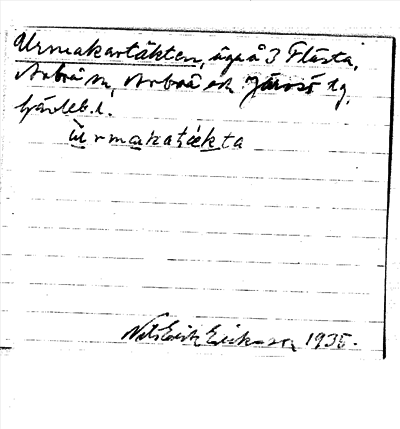 Urmakartäkten, äga å 3 Flästa,
Arbrå sn, Arbrå och Järvsö tg,
Gävleb. l.
ùrmakatäkta
Nils Erik Eriksson 1935.